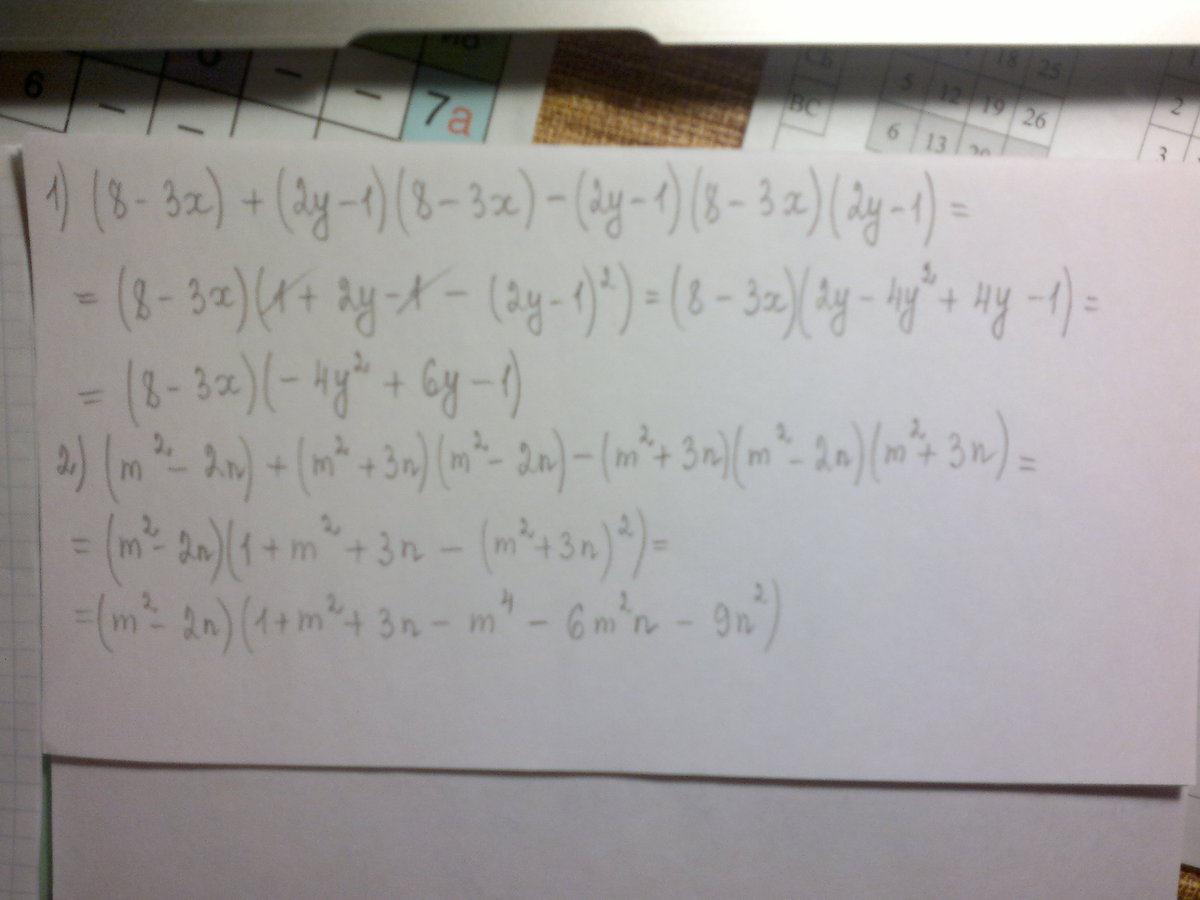 6 – – – – ИО 7а
СБ ВС 5 12 19 26 18 25 6 13 20
1 2 3
1) (8 - 3x) + (2y - 1)(8 - 3x) - (2y - 1)(8 - 3x)(2y - 1) =
= (8 - 3x)(1 + 2y - 1 - (2y - 1)²) = (8 - 3x)(2y - 4y² + 4y - 1) =
= (8 - 3x)(- 4y² + 6y - 1)
2) (m² - 2n) + (m² + 3n)(m² - 2n) - (m² + 3n)(m² - 2n)(m² + 3n) =
= (m² - 2n)(1 + m² + 3n - (m² + 3n)²) =
= (m² - 2n)(1 + m² + 3n - m⁴ - 6m²n - 9n²)